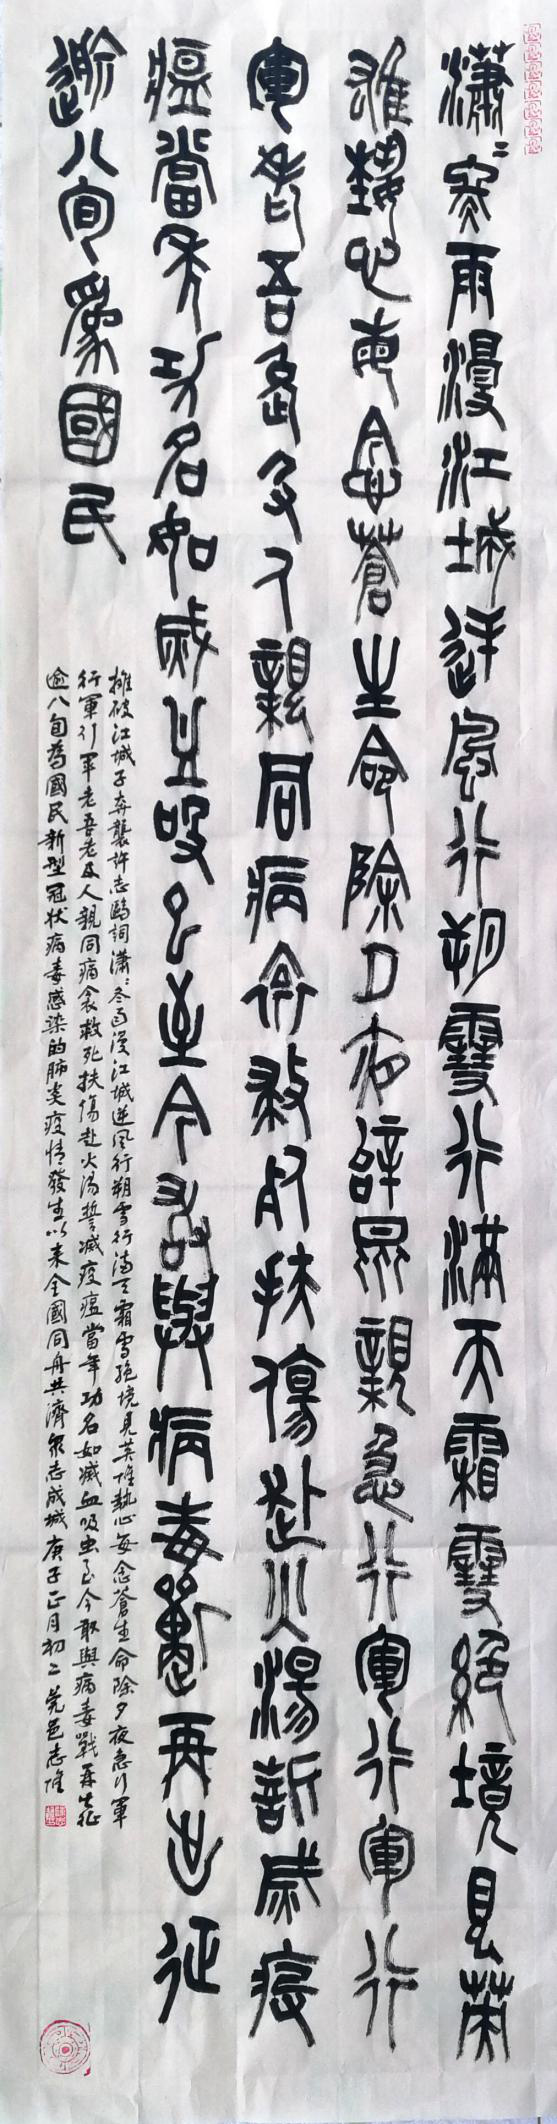 瀟〻寒雨漫江城逆風行朔雪行滿天霜雪絕境見英
雄熱心每念蒼生命除夕夜辭親急行軍行軍行
軍老吾老及人親同病房救死扶傷赴火湯誓滅疫
瘟當年功名如滅血吸虫至今敢與病毒戰再出征
逾八旬為國民
摧破江城子奔襲許志鷗詞瀟〻冬雨漫江城逆風行朔雪行滿天霜雪絕境見英雄熱心每念蒼生命除夕夜急行軍
行軍行軍老吾老及人親同病念救死扶傷赴火湯誓滅疫瘟當年功名如滅血吸虫至今敢與病毒戰再出征
逾八旬為國民新型冠狀病毒感染的肺炎疫情發生以來全國同舟共濟衆志成城庚子正月初二莞邑志雄